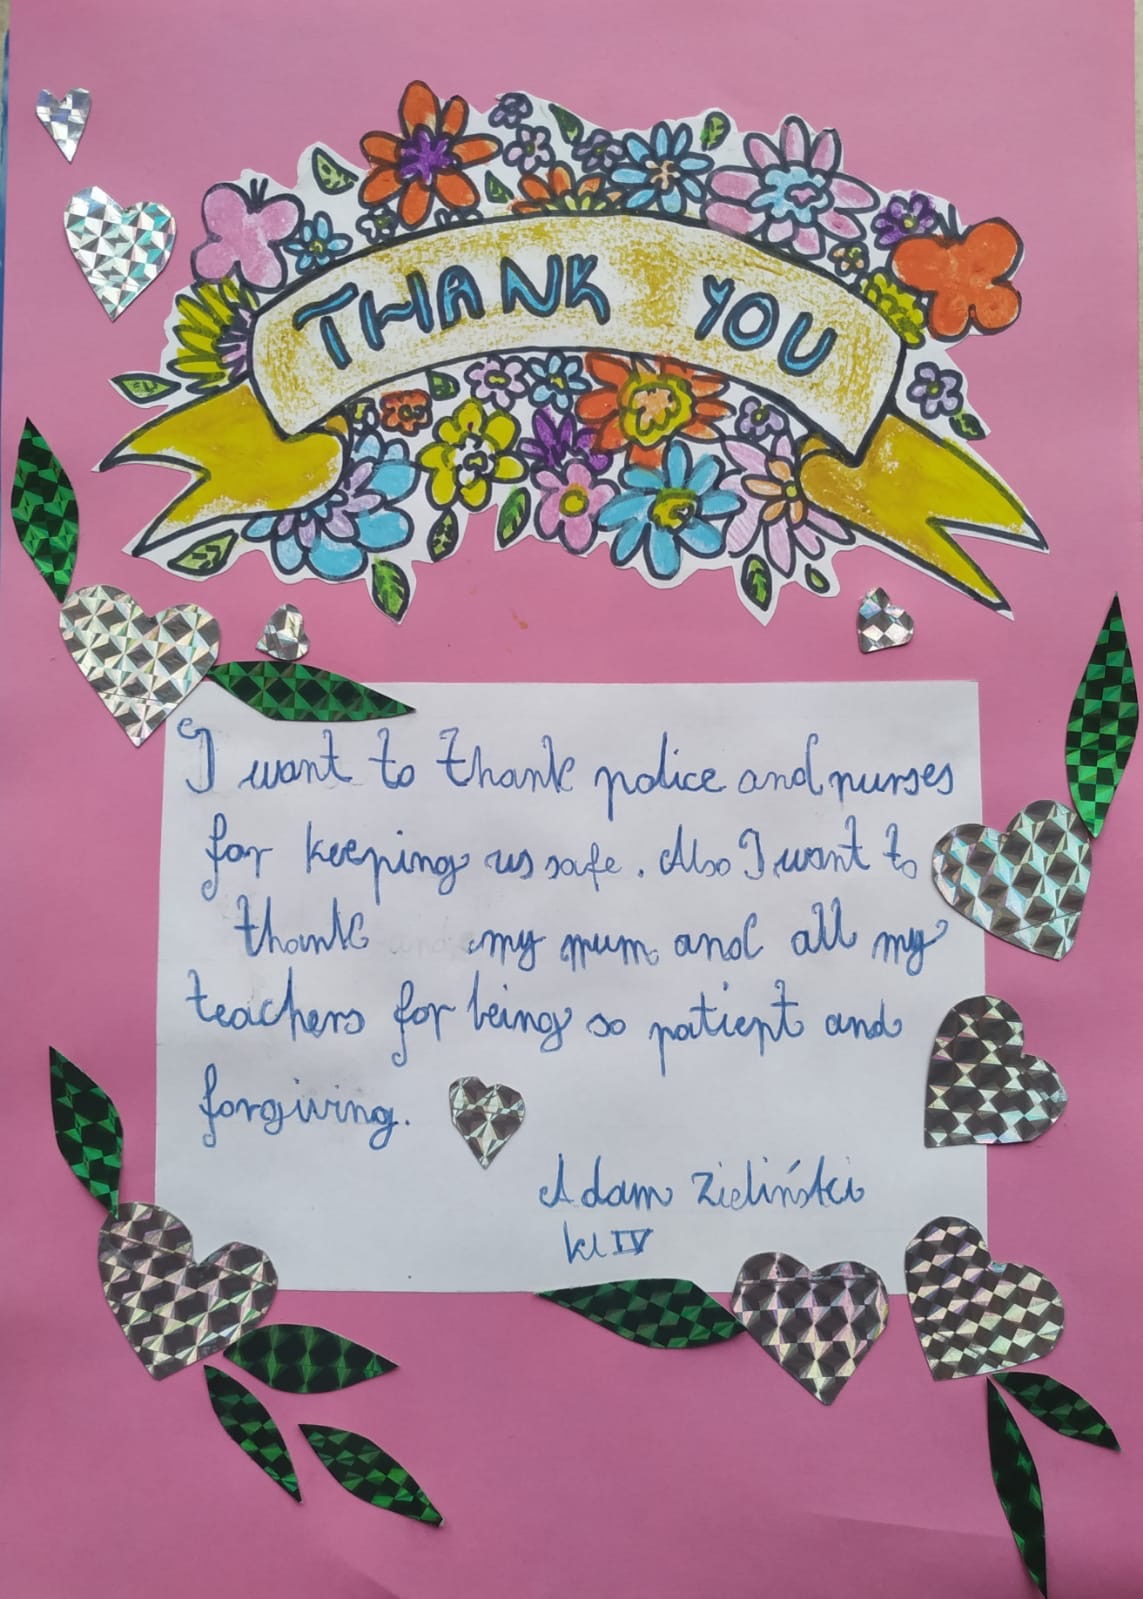 THANK YOU
I want to thank police and nurses
for keeping us safe. Also I want to
thank my mum and all my
teachers for being so patient and
forgiving.
Adam Zieliński
kl IV